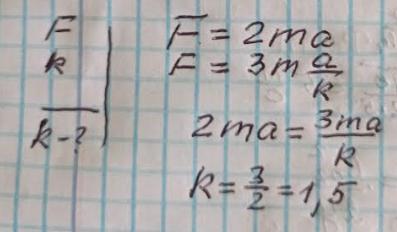 F
k
k-?
F = 2ma
F = 3m a/k
2ma = 3ma/k
k = 3/2 = 1,5